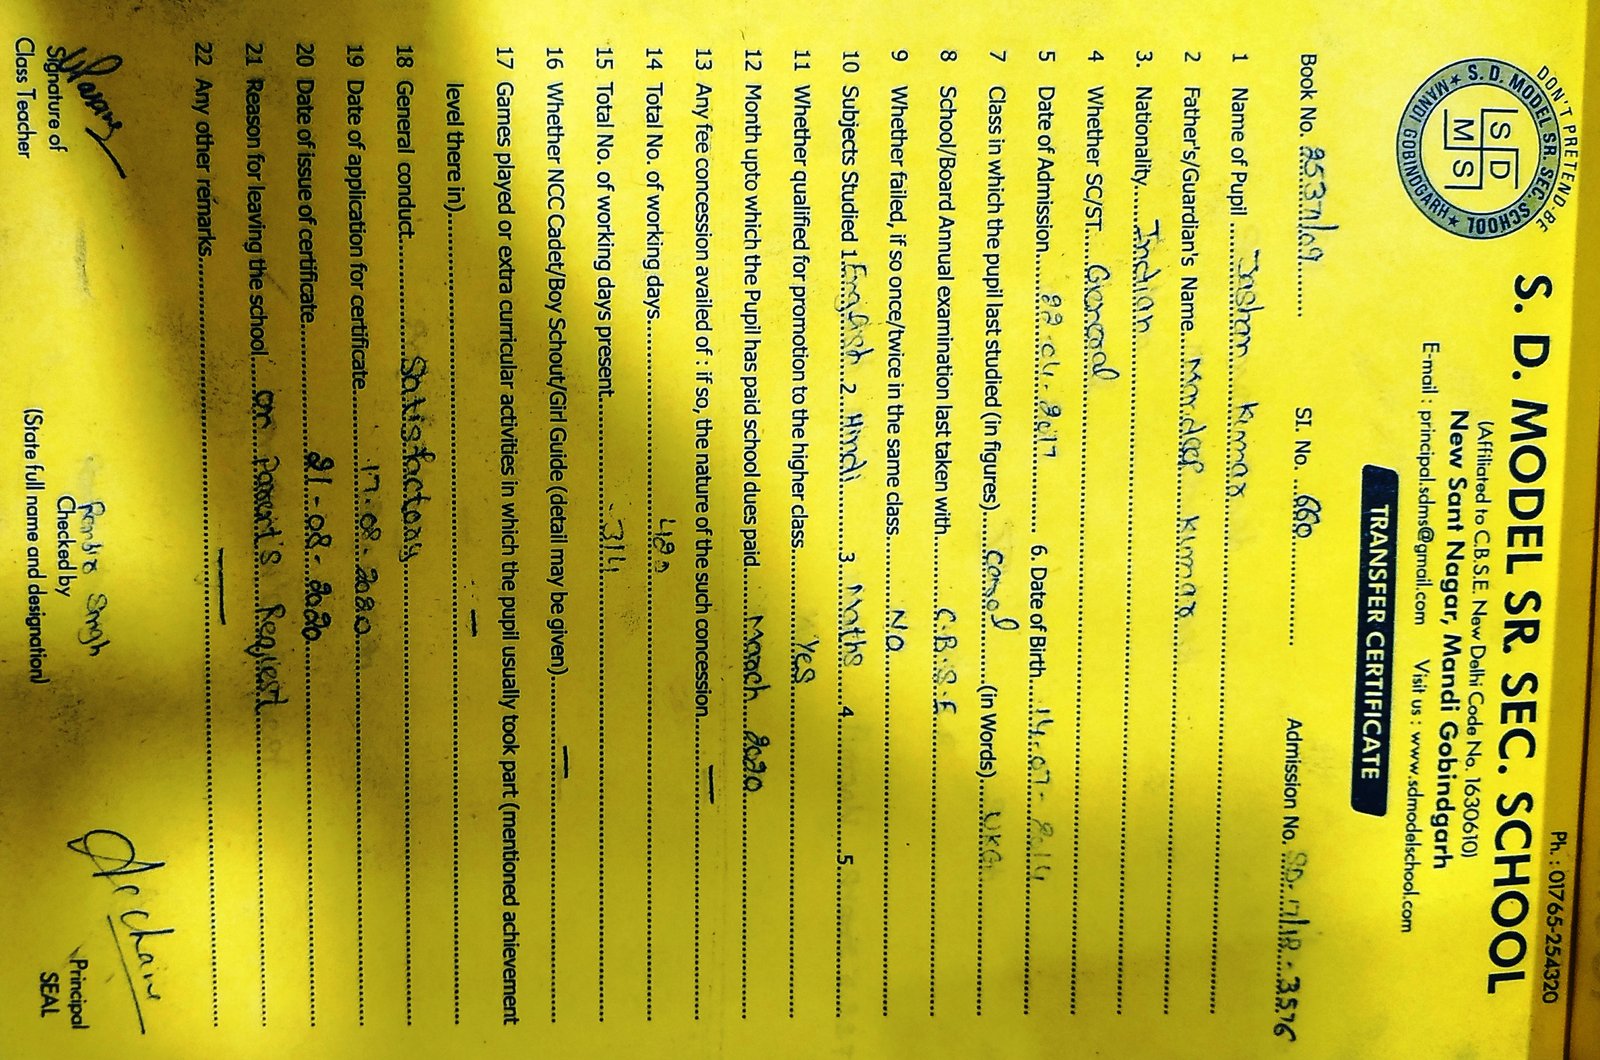 DON'T PRETEND BE
Ph. : 01765-254320
★ S. D. MODEL SR. SEC. SCHOOL ★ MANDI GOBINDGARH
S D
M S
S. D. MODEL SR. SEC. SCHOOL
(Affiliated to C.B.S.E. New Delhi Code No. 1630610)
New Sant Nagar, Mandi Gobindgarh
E-mail : principal.sdms@gmail.com Visit us : www.sdmodelschool.com
TRANSFER CERTIFICATE
Book No. 2537/09 SI. No. 660 Admission No. SD.17/18.3576
1 Name of Pupil Jashan Kumar
2 Father's/Guardian's Name Mandeep Kumar
3. Nationality Indian
4 Whether SC/ST General
5 Date of Admission 22.04.2017 6. Date of Birth 14.07.2014
7 Class in which the pupil last studied (in figures) (in Words) UKG
8 School/Board Annual examination last taken with C.B.S.E
9 Whether failed, if so once/twice in the same class No
10 Subjects Studied 1 English 2 Hindi 3 Maths 4 5
11 Whether qualified for promotion to the higher class Yes
12 Month upto which the Pupil has paid school dues paid March 2020
13 Any fee concession availed of : if so, the nature of the such concession —
14 Total No. of working days
15 Total No. of working days present 314
16 Whether NCC Cadet/Boy Schout/Girl Guide (detail may be given) —
17 Games played or extra curricular activities in which the pupil usually took part (mentioned achievement
level there in) —
18 General conduct Satisfactory
19 Date of application for certificate 17.08.2020
20 Date of issue of certificate 21-08-2020
21 Reason for leaving the school on Parent's Request
22 Any other remarks —
Singh
Signature of Checked by Principal
Class Teacher (State full name and designation) SEAL